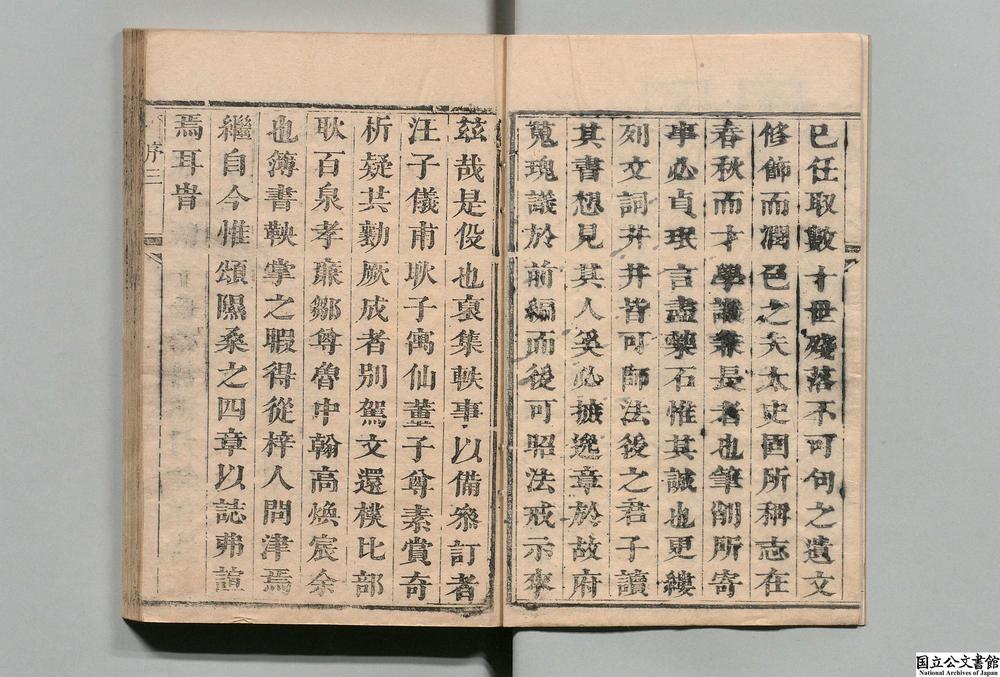 已任取數十世殘落不可句之遺文
修飾而潤色之夫太史固所稱志在
春秋而才學識兼長者也筆削所寄
事必貞珉言盡藥石惟其誠也更縷
列文詞井井皆可師法後之君子讀
其書想見其人奚必摭逸章於故府
蒐瑰議於前編而後可昭法戒示來
茲哉是役也裒集軼事以備參訂者
汪子儀甫耿子寓仙董子尊素賞奇
析疑共勷厥成者別駕文還樸比部
耿百泉孝廉鄒尊魯中翰高煥宸余
也簿書鞅掌之暇得從梓人問津焉
繼自今惟頌隰桑之四章以誌弗諠
焉耳旹
序三
国立公文書館
National Archives of Japan